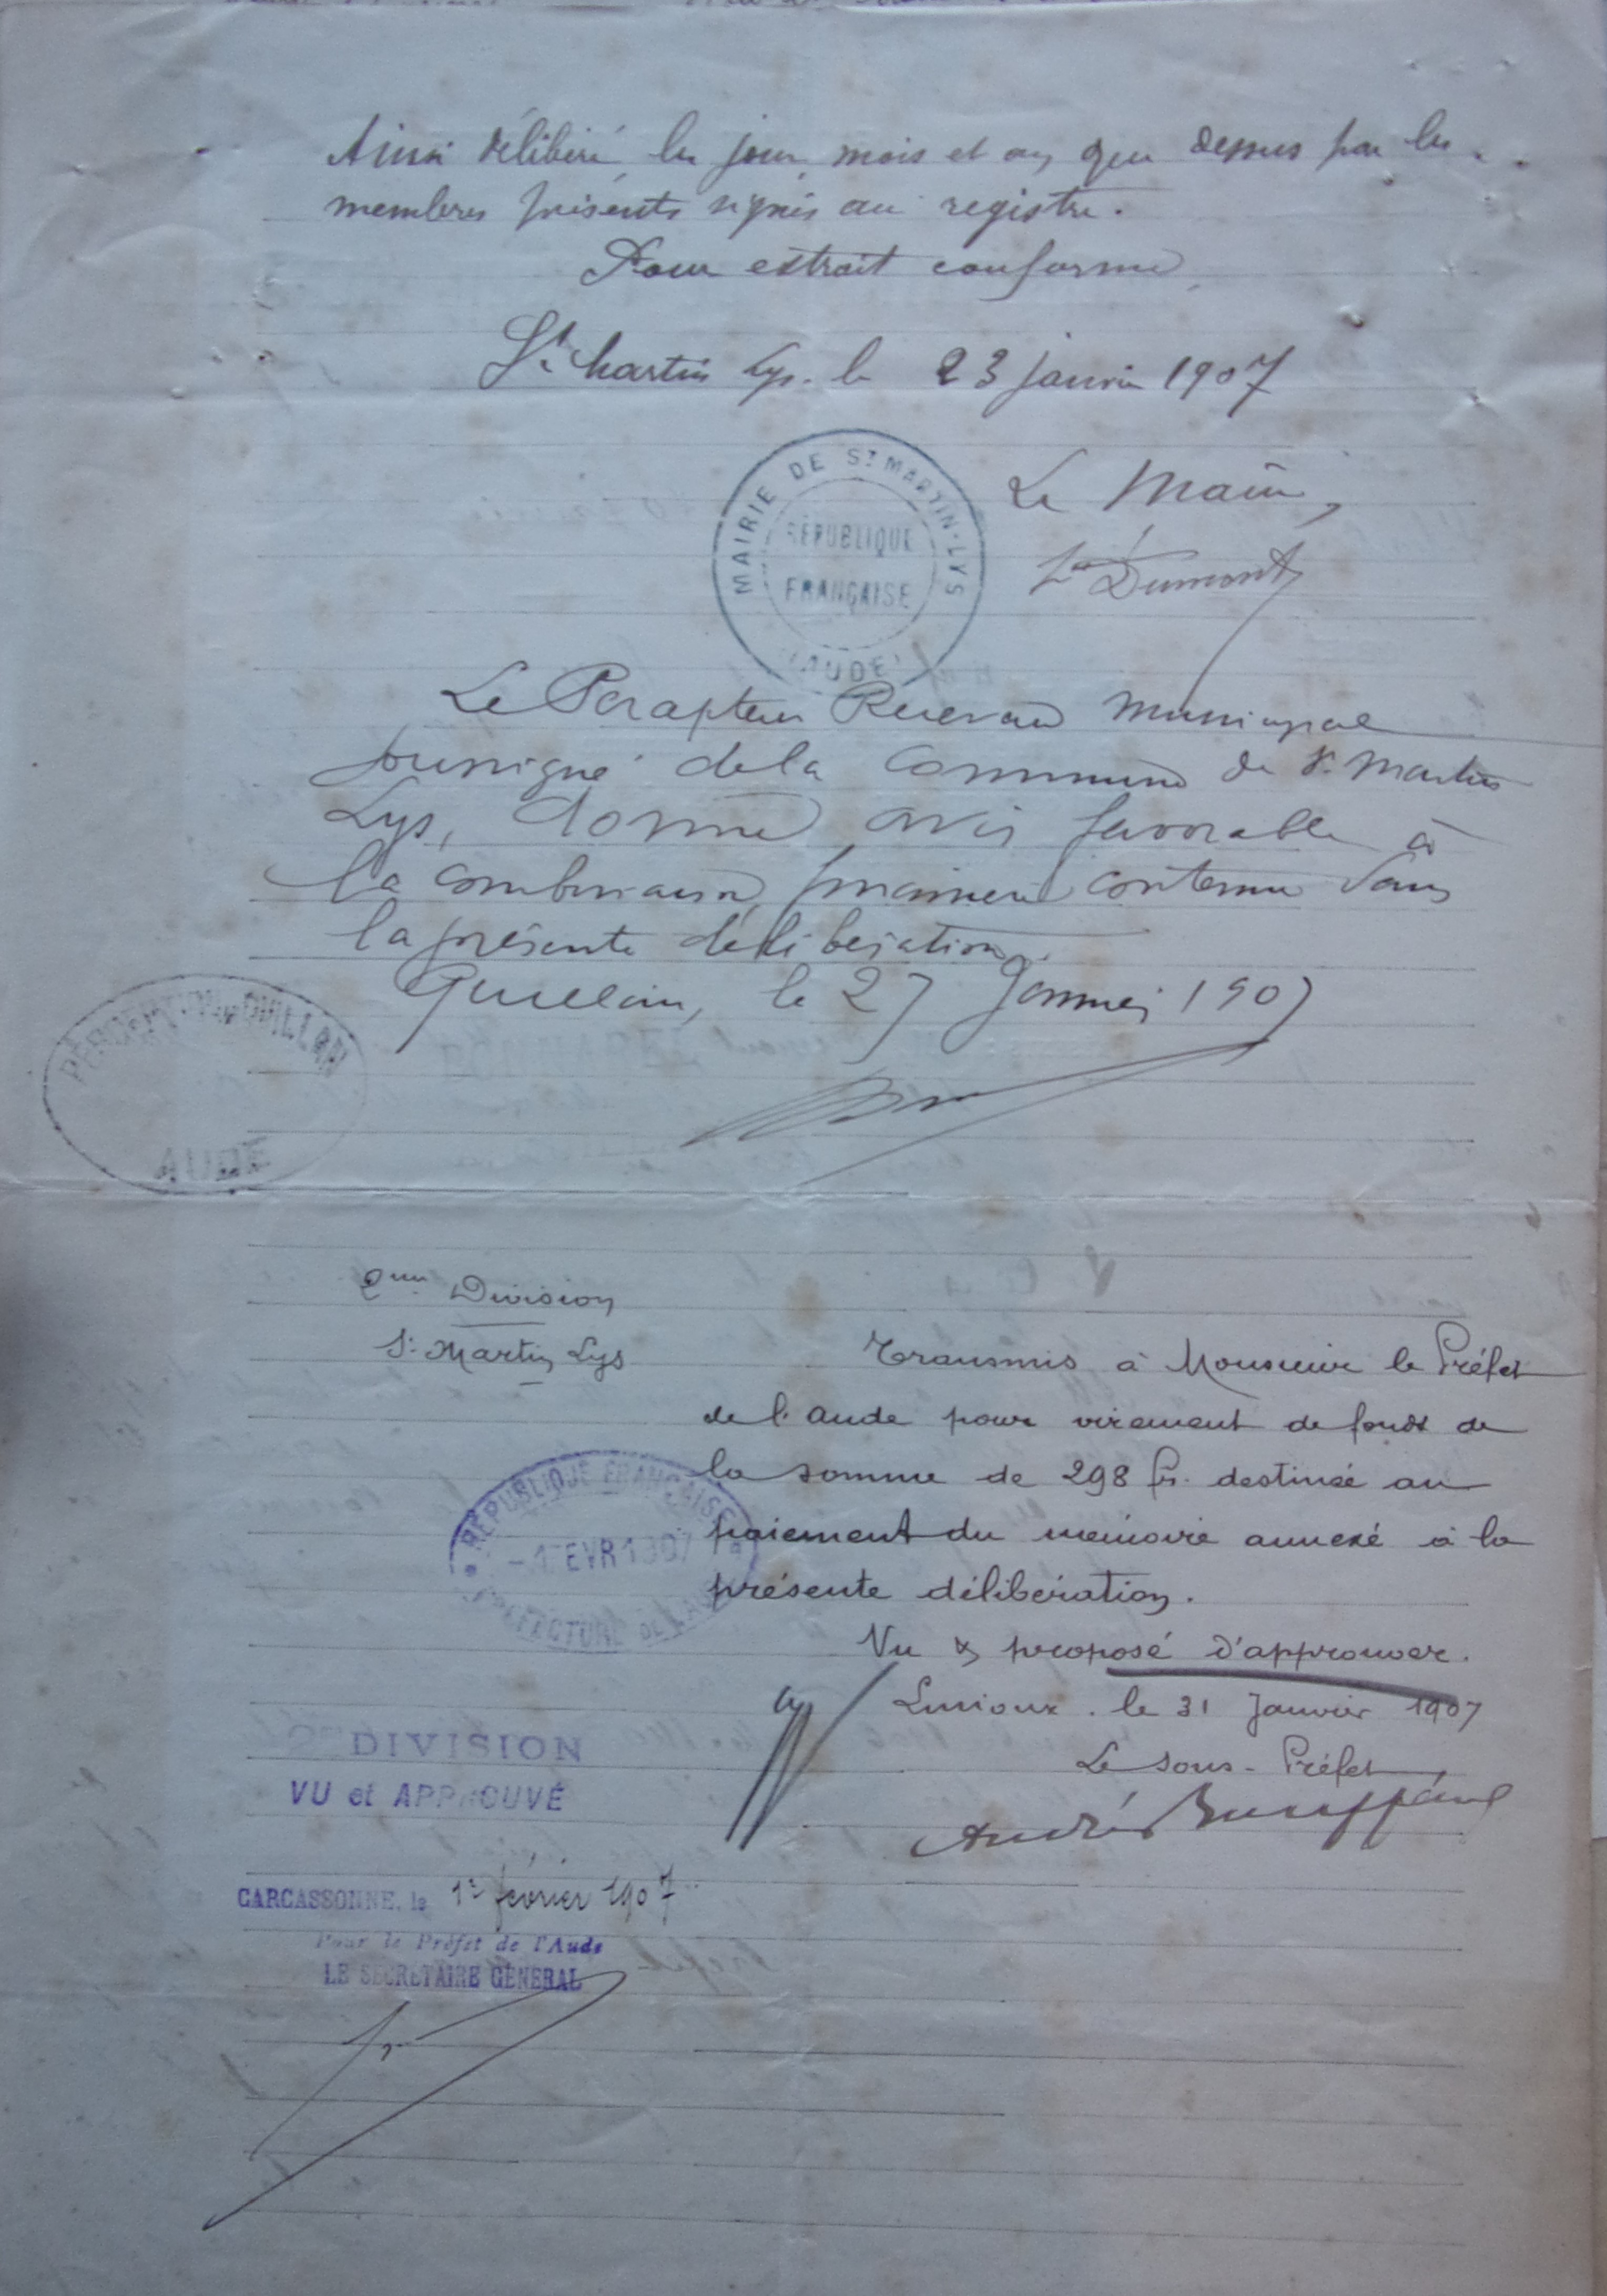 Ainsi délibéré, les jour, mois et an que dessus par les
membres présents signés au registre.
Pour extrait conforme,
St Martin Lys. le 23 janvier 1907
Le Maire,
Dumont
MAIRIE DE ST MARTIN-LYS
RÉPUBLIQUE
FRANÇAISE
(AUDE)
Le Percepteur Receveur Municipal
soussigné de la Commune de St Martin
Lys, donne avis favorable à
la combinaison financière contenue dans
la présente délibération.
Quillan, le 27 Janvier 1907
PERCEPTION DE QUILLAN
AUDE
2eme Division
St Martin Lys
Transmis à Monsieur le Préfet
de l'Aude pour virement de fonds de
la somme de 298 fr. destinée au
paiement du mémoire annexé à la
présente délibération.
Vu & proposé d'approuver.
Limoux. le 31 Janvier 1907
Le Sous-Préfet,
André
RÉPUBLIQUE FRANÇAISE
-1 FEVR 1907
PRÉFECTURE DE L'AUDE
DIVISION
VU et APPROUVÉ
CARCASSONNE, le 1er février 1907
Pour le Préfet de l'Aude
LE SECRÉTAIRE GÉNÉRAL